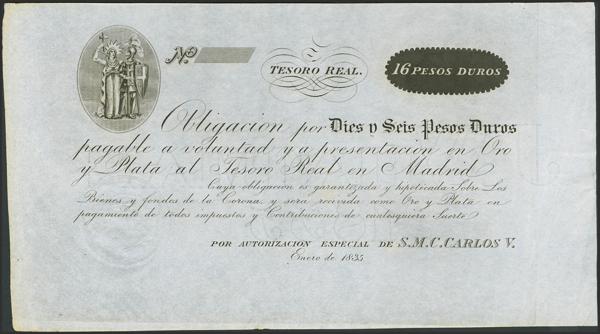 No.
TESORO REAL.
16 PESOS DUROS
Obligacion por Dies y Seis Pesos Duros
pagable a voluntad y a presentacion en Oro
y Plata al Tesoro Real en Madrid
Cuya obligacion es garantizada y hipotecada Sobre Los
Bienes y fondos de la Corona, y será recivida como Oro y Plata en
pagamiento de todos impuestos y Contribuciones de cualesquiera Suerte
POR AUTORIZACION ESPECIAL DE S.M.C. CARLOS V.
Enero de 1835